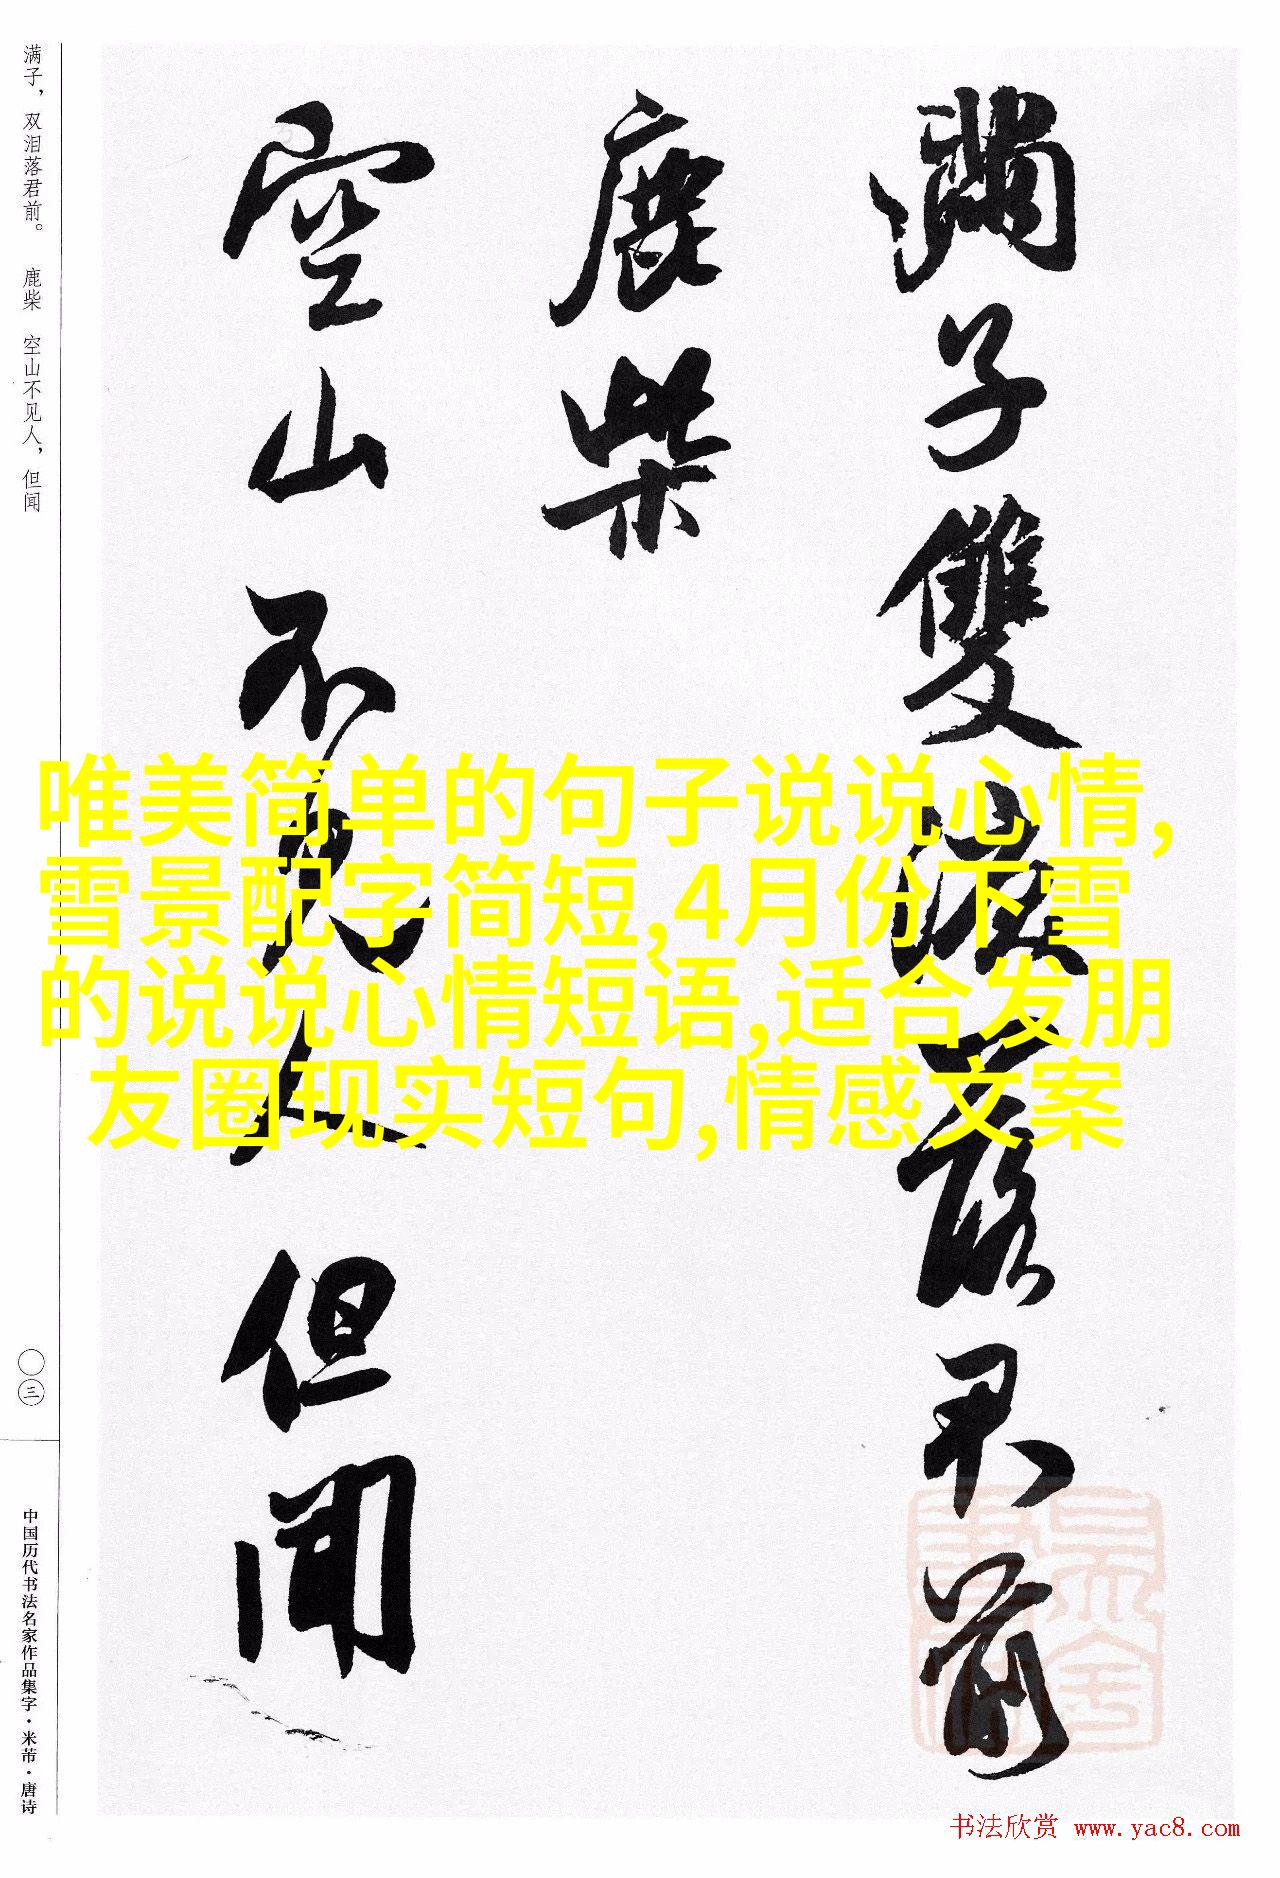 滿子雙淚落君前
鹿柴
空山不見人但聞
满子，双泪落君前。 鹿柴 空山不见人，但闻
〇三
中国历代书法名家作品集字·米芾·唐诗
唯美简单的句子说说心情,
雪景配字简短,4月份下雪
的说说心情短语,适合发朋
友圈现实短句,情感文案
书法欣赏 www.yac8.com